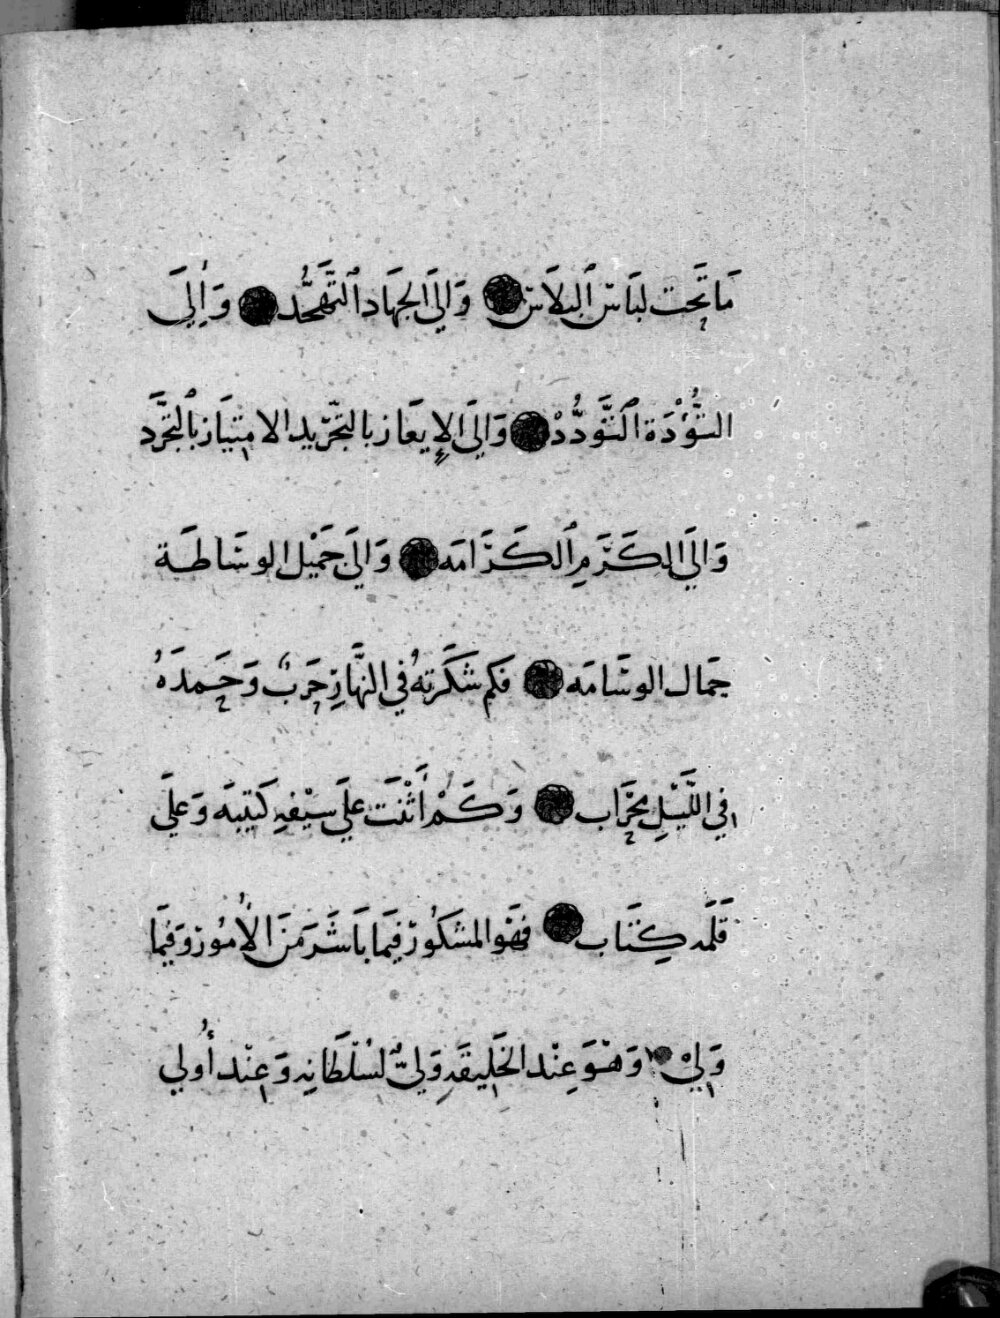 مَا تَحْت لبَاس ٱلبلَاس ۝ وَالَى الجهَاد ٱلتَّهَجُّد ۝ وَإِلَى
التُّؤْدَة ٱلتَّوَدُّدْ ۝ وَالَى الإيعَاز بالتجّريد الامتيَاز بٱلتجَرَّد
وَالَى الكَرَمِ ٱلكَرَامَه ۝ وَالَى جَمَيْل الوسَاطَة
جَمال الوسَامَه ۝ فكم شكَرَتهُ في النهَّارِ حَربٌ وَحَمدَهُ
في اللَّيْلِ محْرَاب ۝ وَكَمْ أَثْنَت علَى سيْفهِ كَتيبَه وَعلَى
قَلَمه كِتَاب ۝ فهَوْ المشكُورْ فيمَا بَاشَرَ منَ الأُمُورْ وَفيمَا
وَلِيْ ۝ وَهْوَ عنْد الخَليفَهِ وَليٌّ لسْلطَانِه وَعنْد أُولي